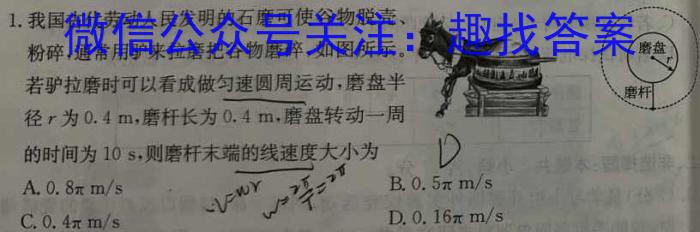 1. 我国古代劳动人民发明的石磨可使谷物脱壳、
微信公众号关注：趣找答案
粉碎,通常用驴来拉磨把谷物磨碎,如图所示。
若驴拉磨时可以看成做匀速圆周运动,磨盘半
径 r 为 0.4 m,磨杆长为 0.4 m,磨盘转动一周
的时间为 10 s,则磨杆末端的线速度大小为
磨盘
r
磨杆
D
A. 0.8π m/s
B. 0.5π m/s
C. 0.4π m/s
D. 0.16π m/s
v=wr